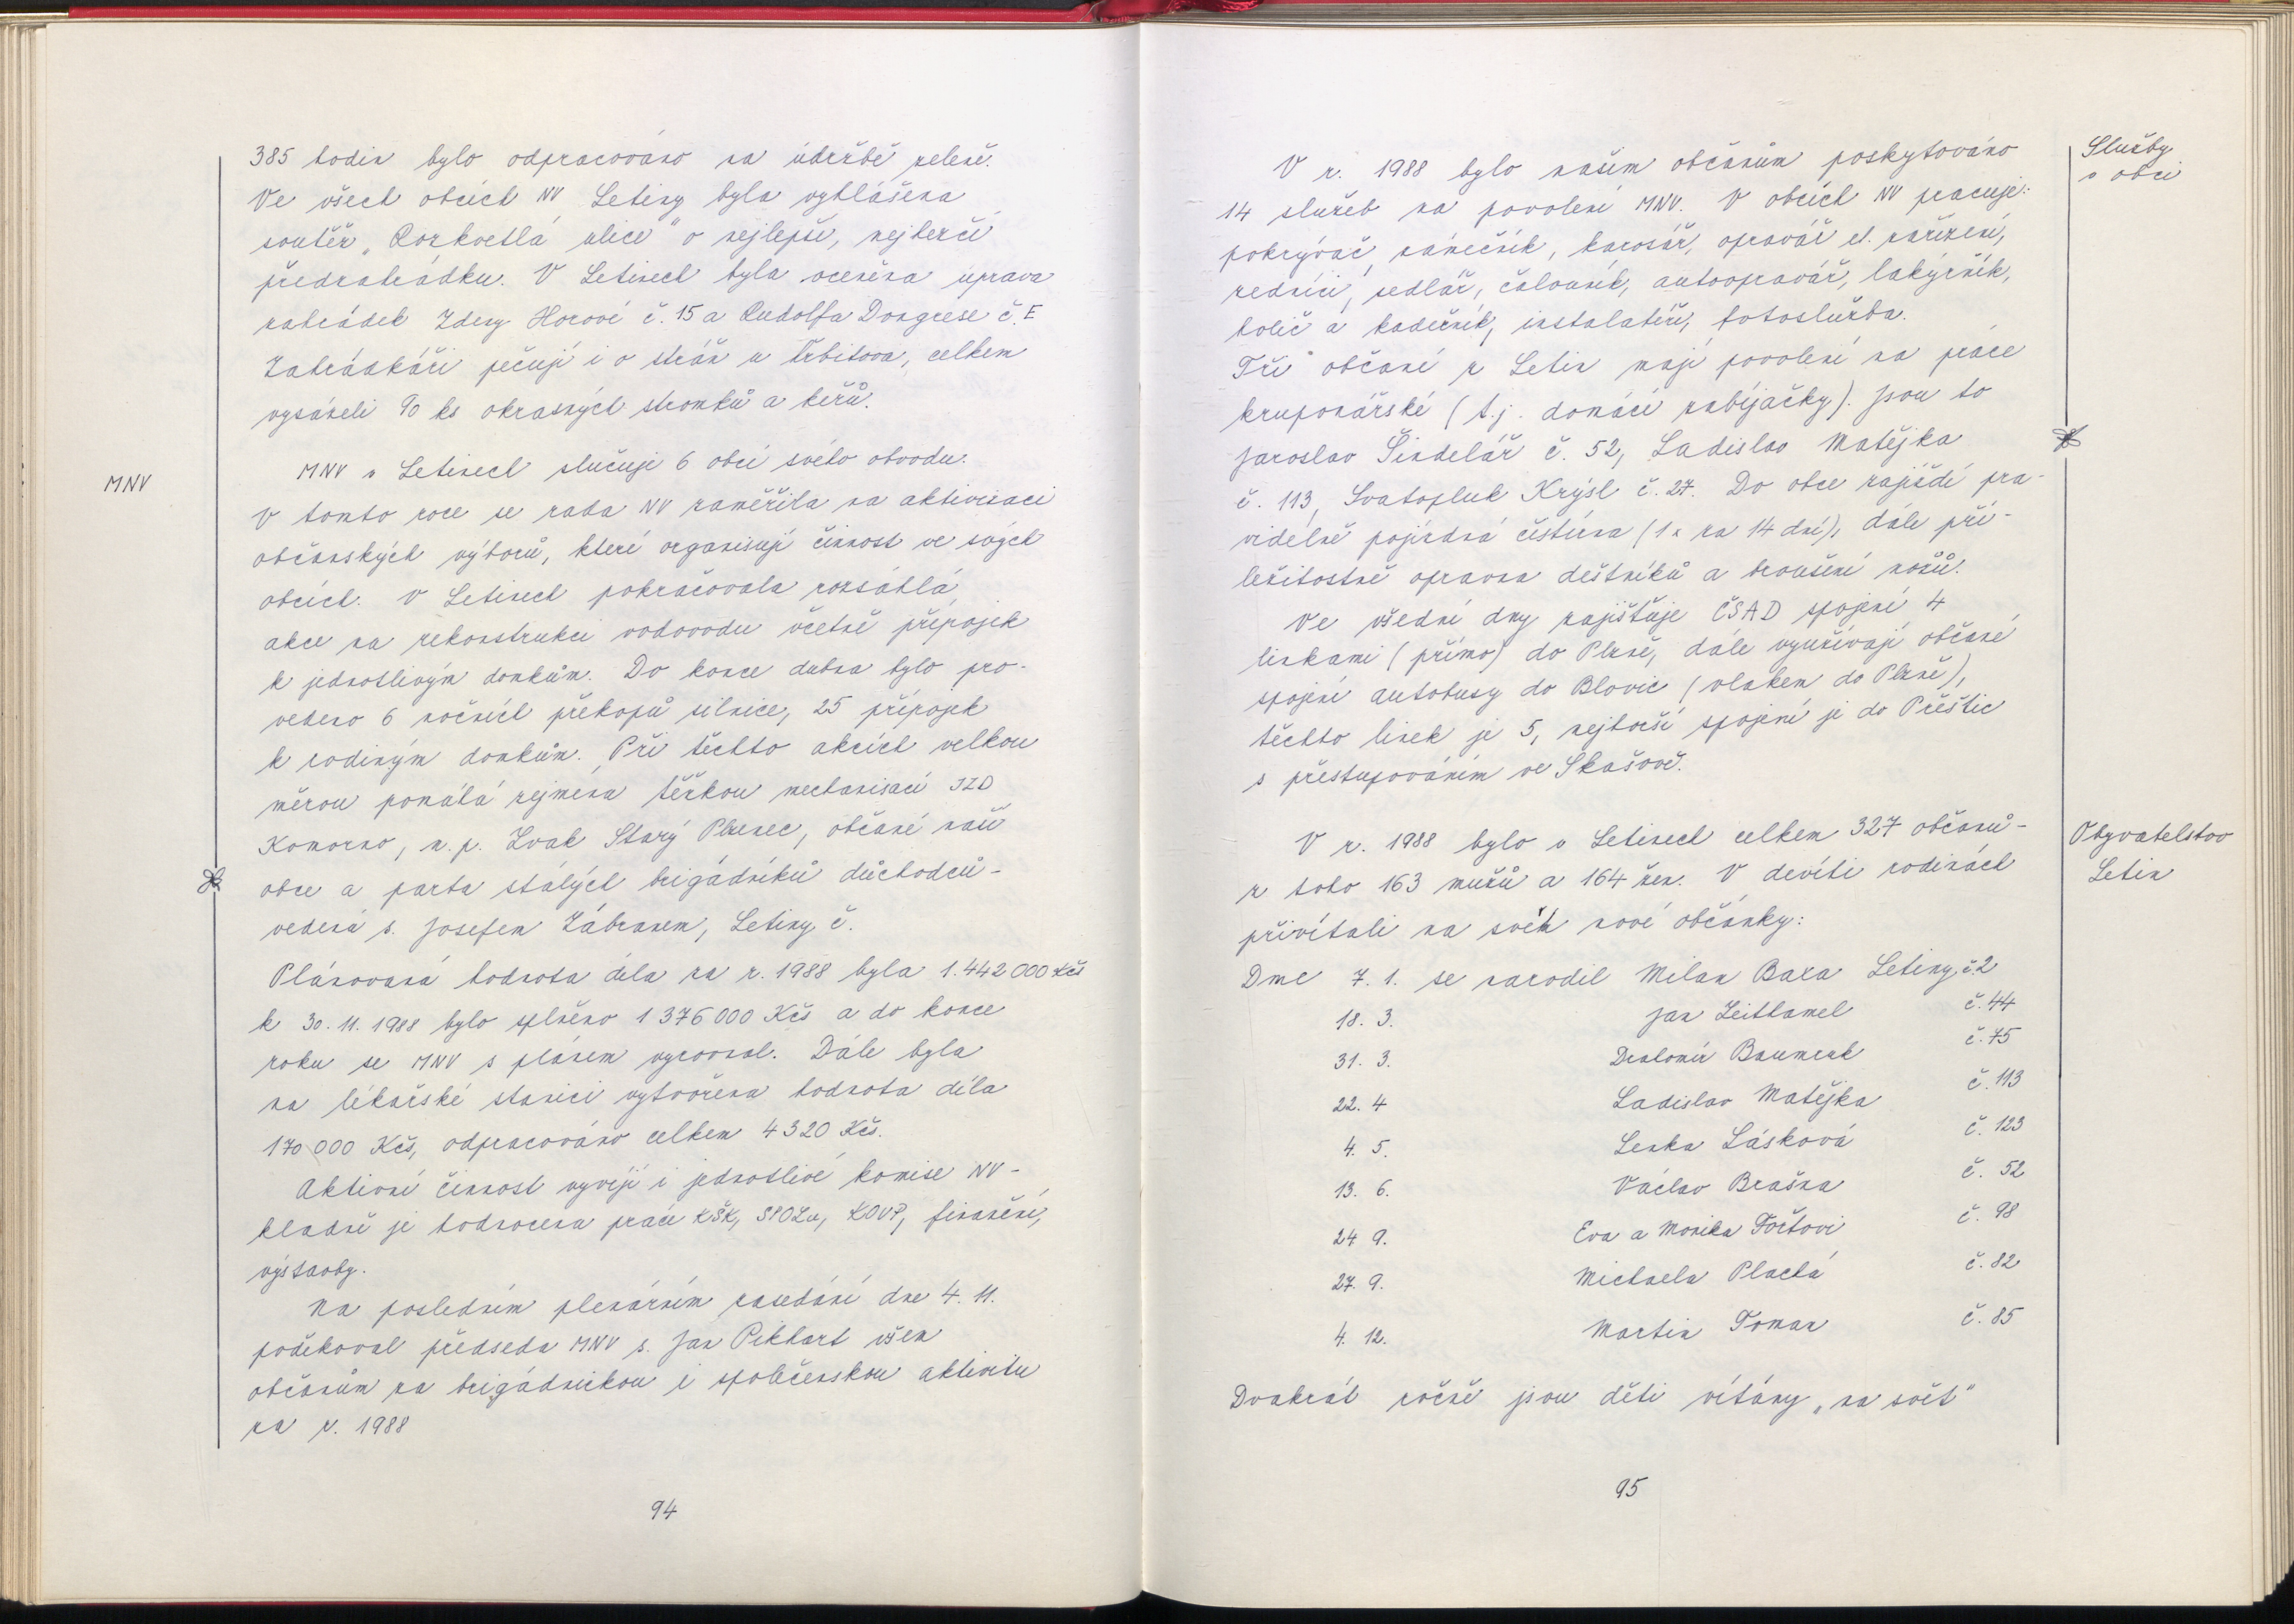 385 hodin bylo odpracováno na údržbě zeleně.
Ve všech obcích NV Letiny byla vyhlášena
soutěž „Rozkvetlá ulice" o nejlepší, nejhezčí
předzahrádku. V Letinech byla oceněna úprava
zahrádek Zdeny Horové č. 15 a Rudolfa Dongrese č. E
Zahrádkáři pečují i o stráň u hřbitova, celkem
vysázeli 90 ks okrasných stromků a keřů.
MNV
MNV v Letinech slučuje 6 obcí svého obvodu.
V tomto roce se rada NV zaměřila na aktivizaci
občanských výborů, které organisují činnost ve svých
obcích. V Letinech pokračovala rozsáhlá
akce na rekonstrukci vodovodu včetně přípojek
k jednotlivým domkům. Do konce dubna bylo pro-
vedeno 6 nočních překopů silnice, 25 přípojek
k rodinným domkům. Při těchto akcích velkou
měrou pomáhá zejména těžkou mechanisací JZD
Komorno, n. p. Zvak Starý Plzenec, občané naší
obce a parta stálých brigádníků důchodců -
vedená s. Josefem Zábranem, Letiny č.
Plánovaná hodnota díla za r. 1988 byla 1.442 000 Kčs
k 30. 11. 1988 bylo splněno 1 376 000 Kčs a do konce
roku se MNV s plánem vyrovnal. Dále byla
na lékařské stanici vytvořena hodnota díla
170 000 Kčs, odpracováno celkem 4320 Kčs.
Aktivní činnost vyvíjí i jednotlivé komise NV -
kladně je hodnocena práce KŠK, SPOZu, KOVP, finanční,
výstavby.
Na posledním plenárním zasedání dne 4. 11.
poděkoval předseda MNV s. Jan Pikhart všem
občanům za brigádnickou i společenskou aktivitu
za r. 1988
94
Služby
v obci
V r. 1988 bylo našim občanům poskytováno
14 služeb na povolení MNV. V obcích NV pracuje:
pokrývač, zámečník, karosář, opravář el. zařízení,
zedníci, sedlář, čalouník, autoopravář, lakýrník,
holič a kadeřník, instalatéři, fotoslužba.
Tři občané z Letin mají povolení na práce
kruponářské (t.j. domácí zabíjačky). Jsou to
Jaroslav Šindelář č. 52, Ladislav Matějka
č. 113, Svatopluk Krýsl č. 27. Do obce zajíždí pra-
videlně pojízdná čistírna (1x za 14 dní), dále pří-
ležitostně opravna deštníků a broušení nožů.
Ve všední dny zajišťuje ČSAD spojení 4
linkami (přímo) do Plzně, dále využívají občané
spojení autobusy do Blovic (vlakem do Plzně),
těchto linek je 5, nejhorší spojení je do Přeštic
s přestupováním ve Skašově.
Obyvatelstvo
Letin
V r. 1988 bylo v Letinech celkem 327 občanů -
z toho 163 mužů a 164 žen. V devíti rodinách
přivítali na svět nové občánky:
Dne 7. 1. se narodil Milan Baxa Letiny č. 2
18. 3. Jan Zeithamel č. 44
31. 3. Drahomír Baumruk č. 75
22. 4 Ladislav Matějka č. 113
4. 5. Lenka Lásková č. 123
13. 6. Václav Brašna č. 52
24 9. Eva a Monika Foč­tovi č. 98
27. 9. Michaela Plachá č. 82
4. 12. Martin Toman č. 85
Dvakrát ročně jsou děti vítány „na svět"
95